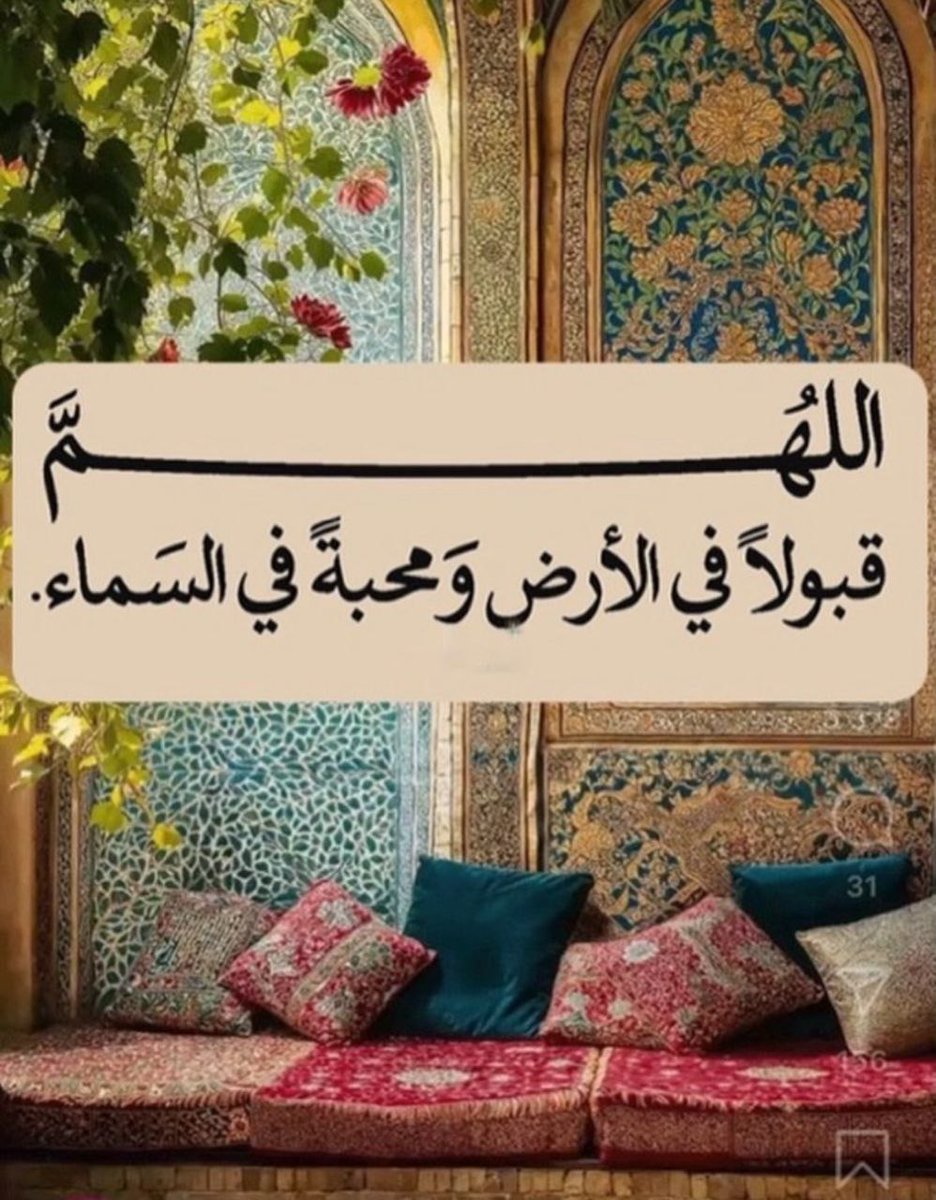 اللهُمَّ
قبولاً في الأرض وَمحبةً في السَماء.
31
156